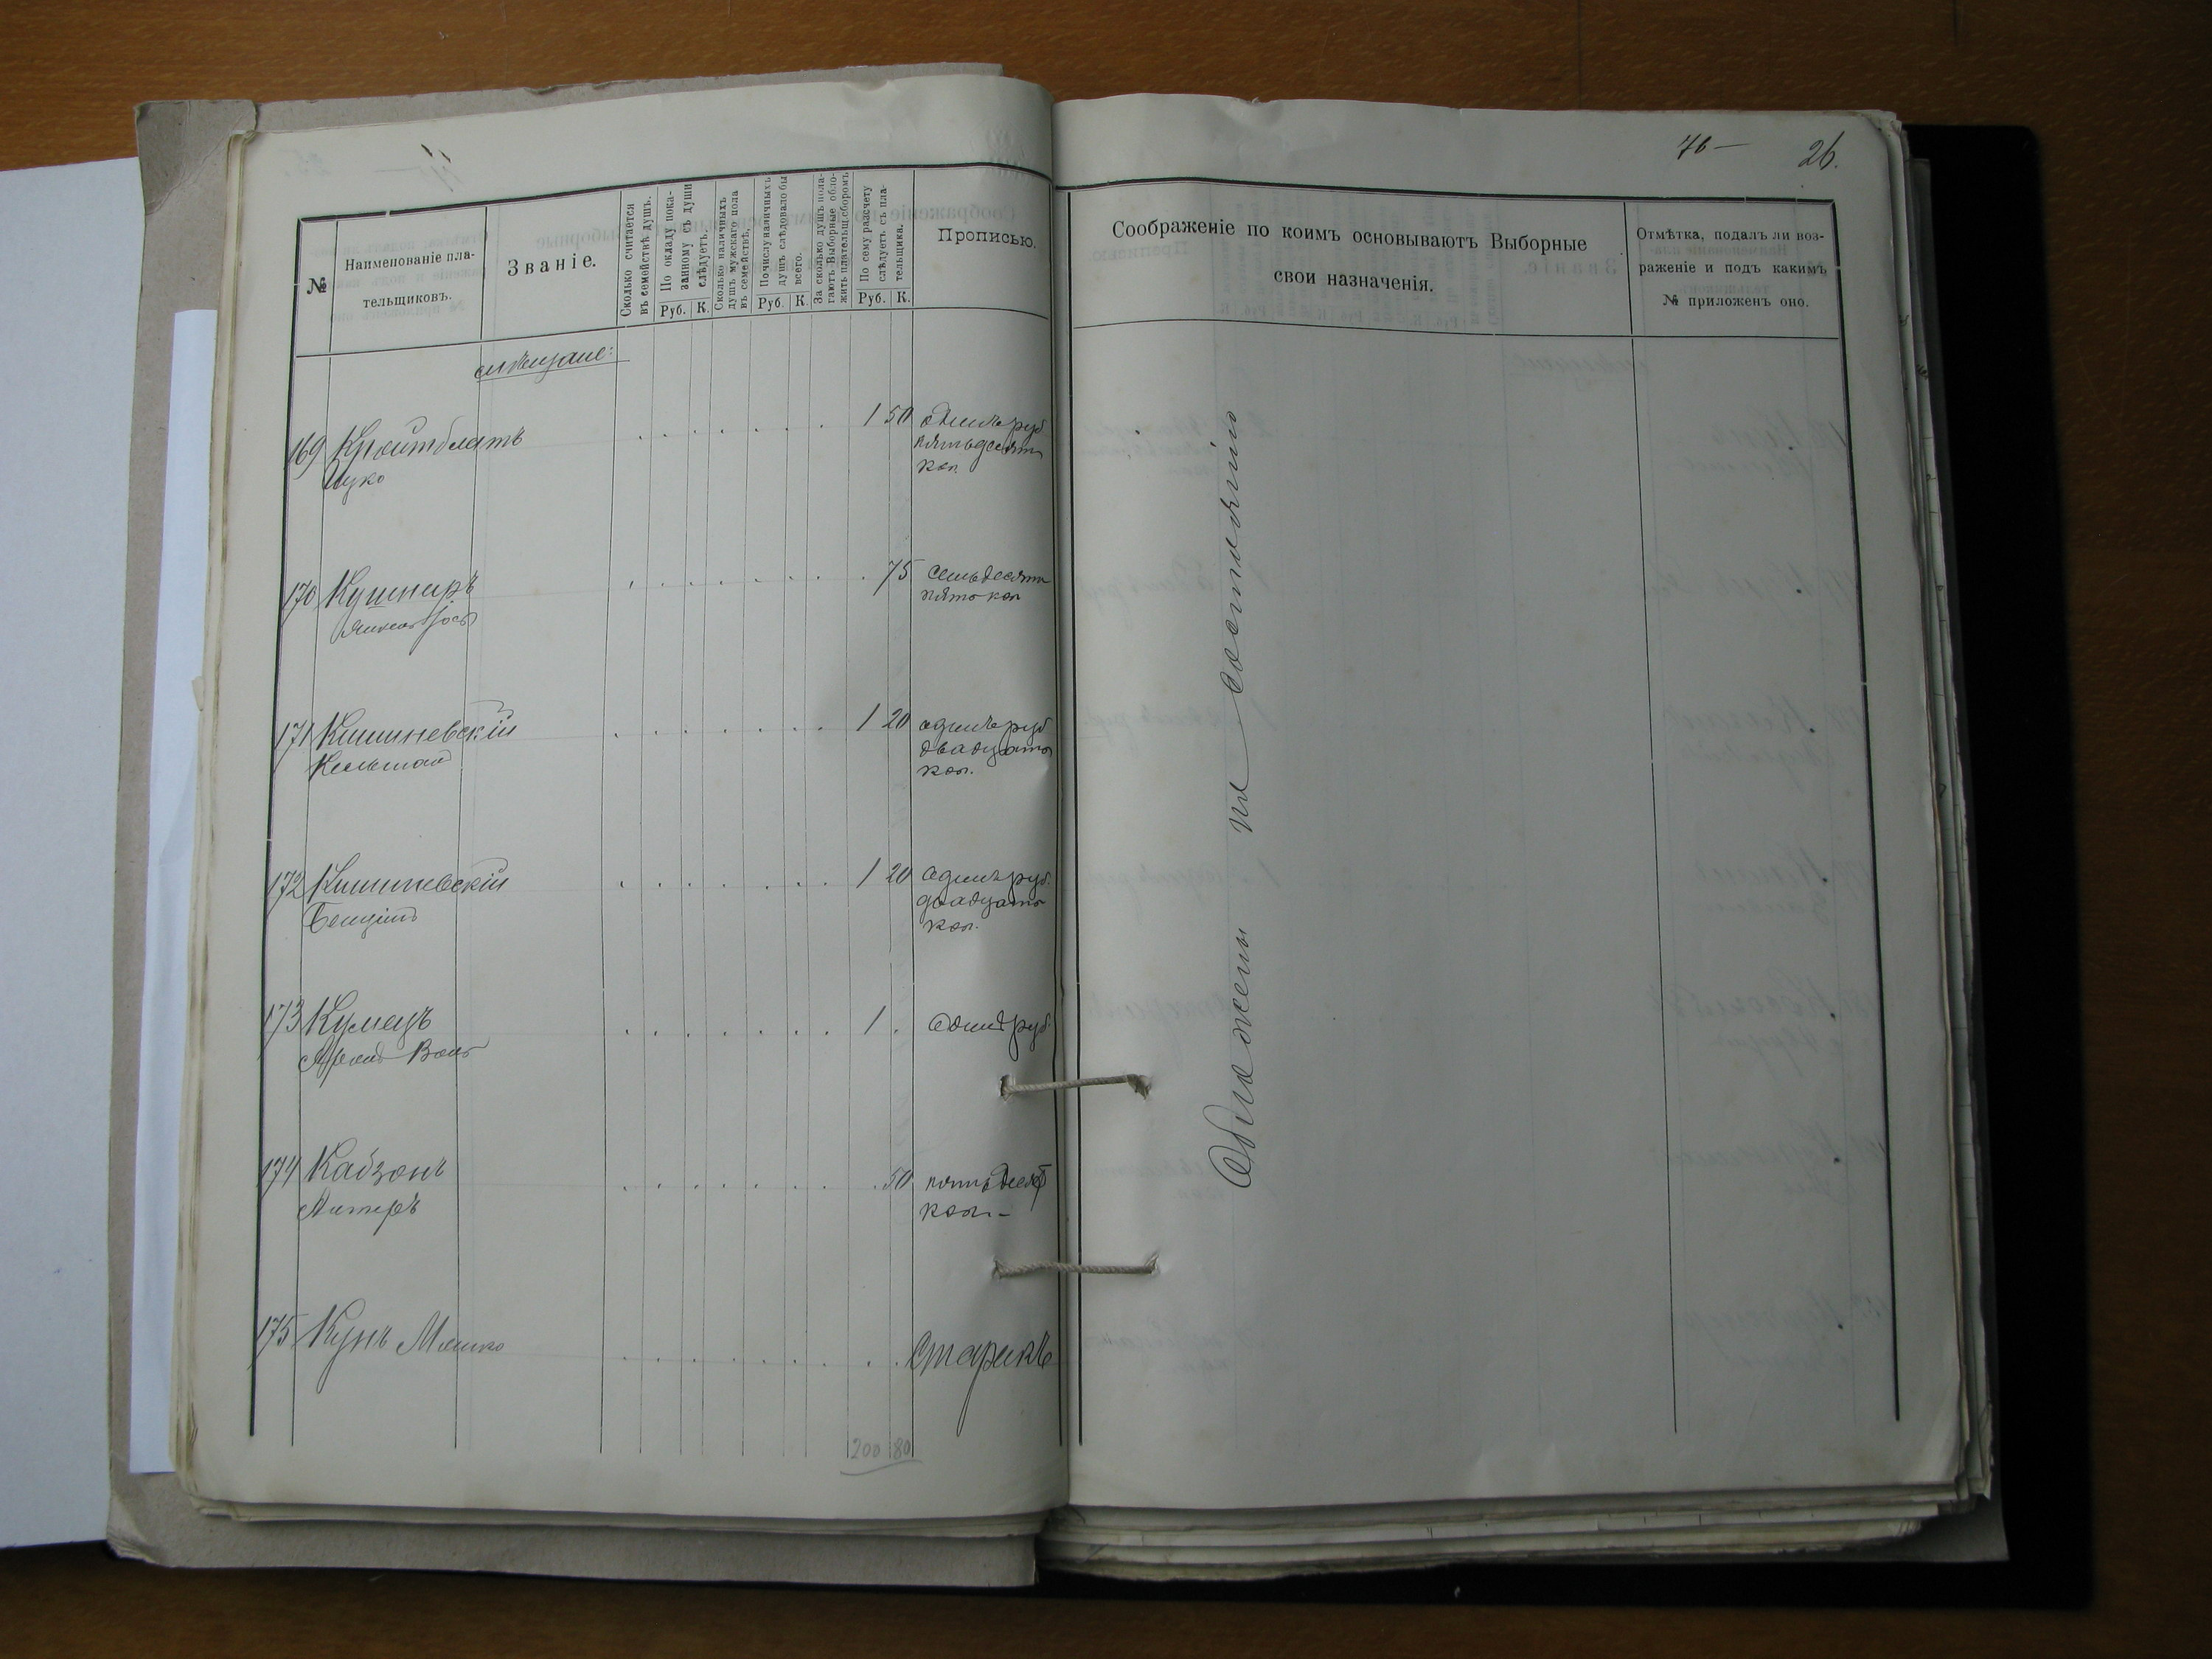 76 —
26.
№
Наименованіе пла-
тельщиковъ.
Званіе.
Сколько считается
въ семействѣ душъ.
По окладу пока-
занному съ души
слѣдуетъ.
Руб. К.
Сколько наличныхъ
душъ мужскаго пола
въ семействѣ.
По числу наличныхъ
душъ слѣдовало бы
всего.
Руб. К.
За сколько душъ пола-
гаютъ Выборные обло-
жить плательщ. сборомъ
По сему расчету
слѣдуетъ съ пла-
тельщика.
Руб. К.
Прописью.
Соображеніе по коимъ основываютъ Выборные
свои назначенія.
Отмѣтка, подалъ ли воз-
раженіе и подъ какимъ
№ приложенъ оно.
мѣщане:
169 Кройтблатъ 1 50 одинъ руб
Ицко пятьдесятъ
коп.
170 Кушниръ 75 семьдесятъ
пять коп
171 Кишиневскій 1 20 одинъ руб
Кельман двадцать
коп.
172 Кишиневскій 1 20 одинъ руб.
Бенціонъ двадцать
коп.
173 1 . один руб.
174 Кайзонъ 50 пятьдесят
коп. -
175 Кунъ Мошко Старикъ
200 80
Обложены по состоянію